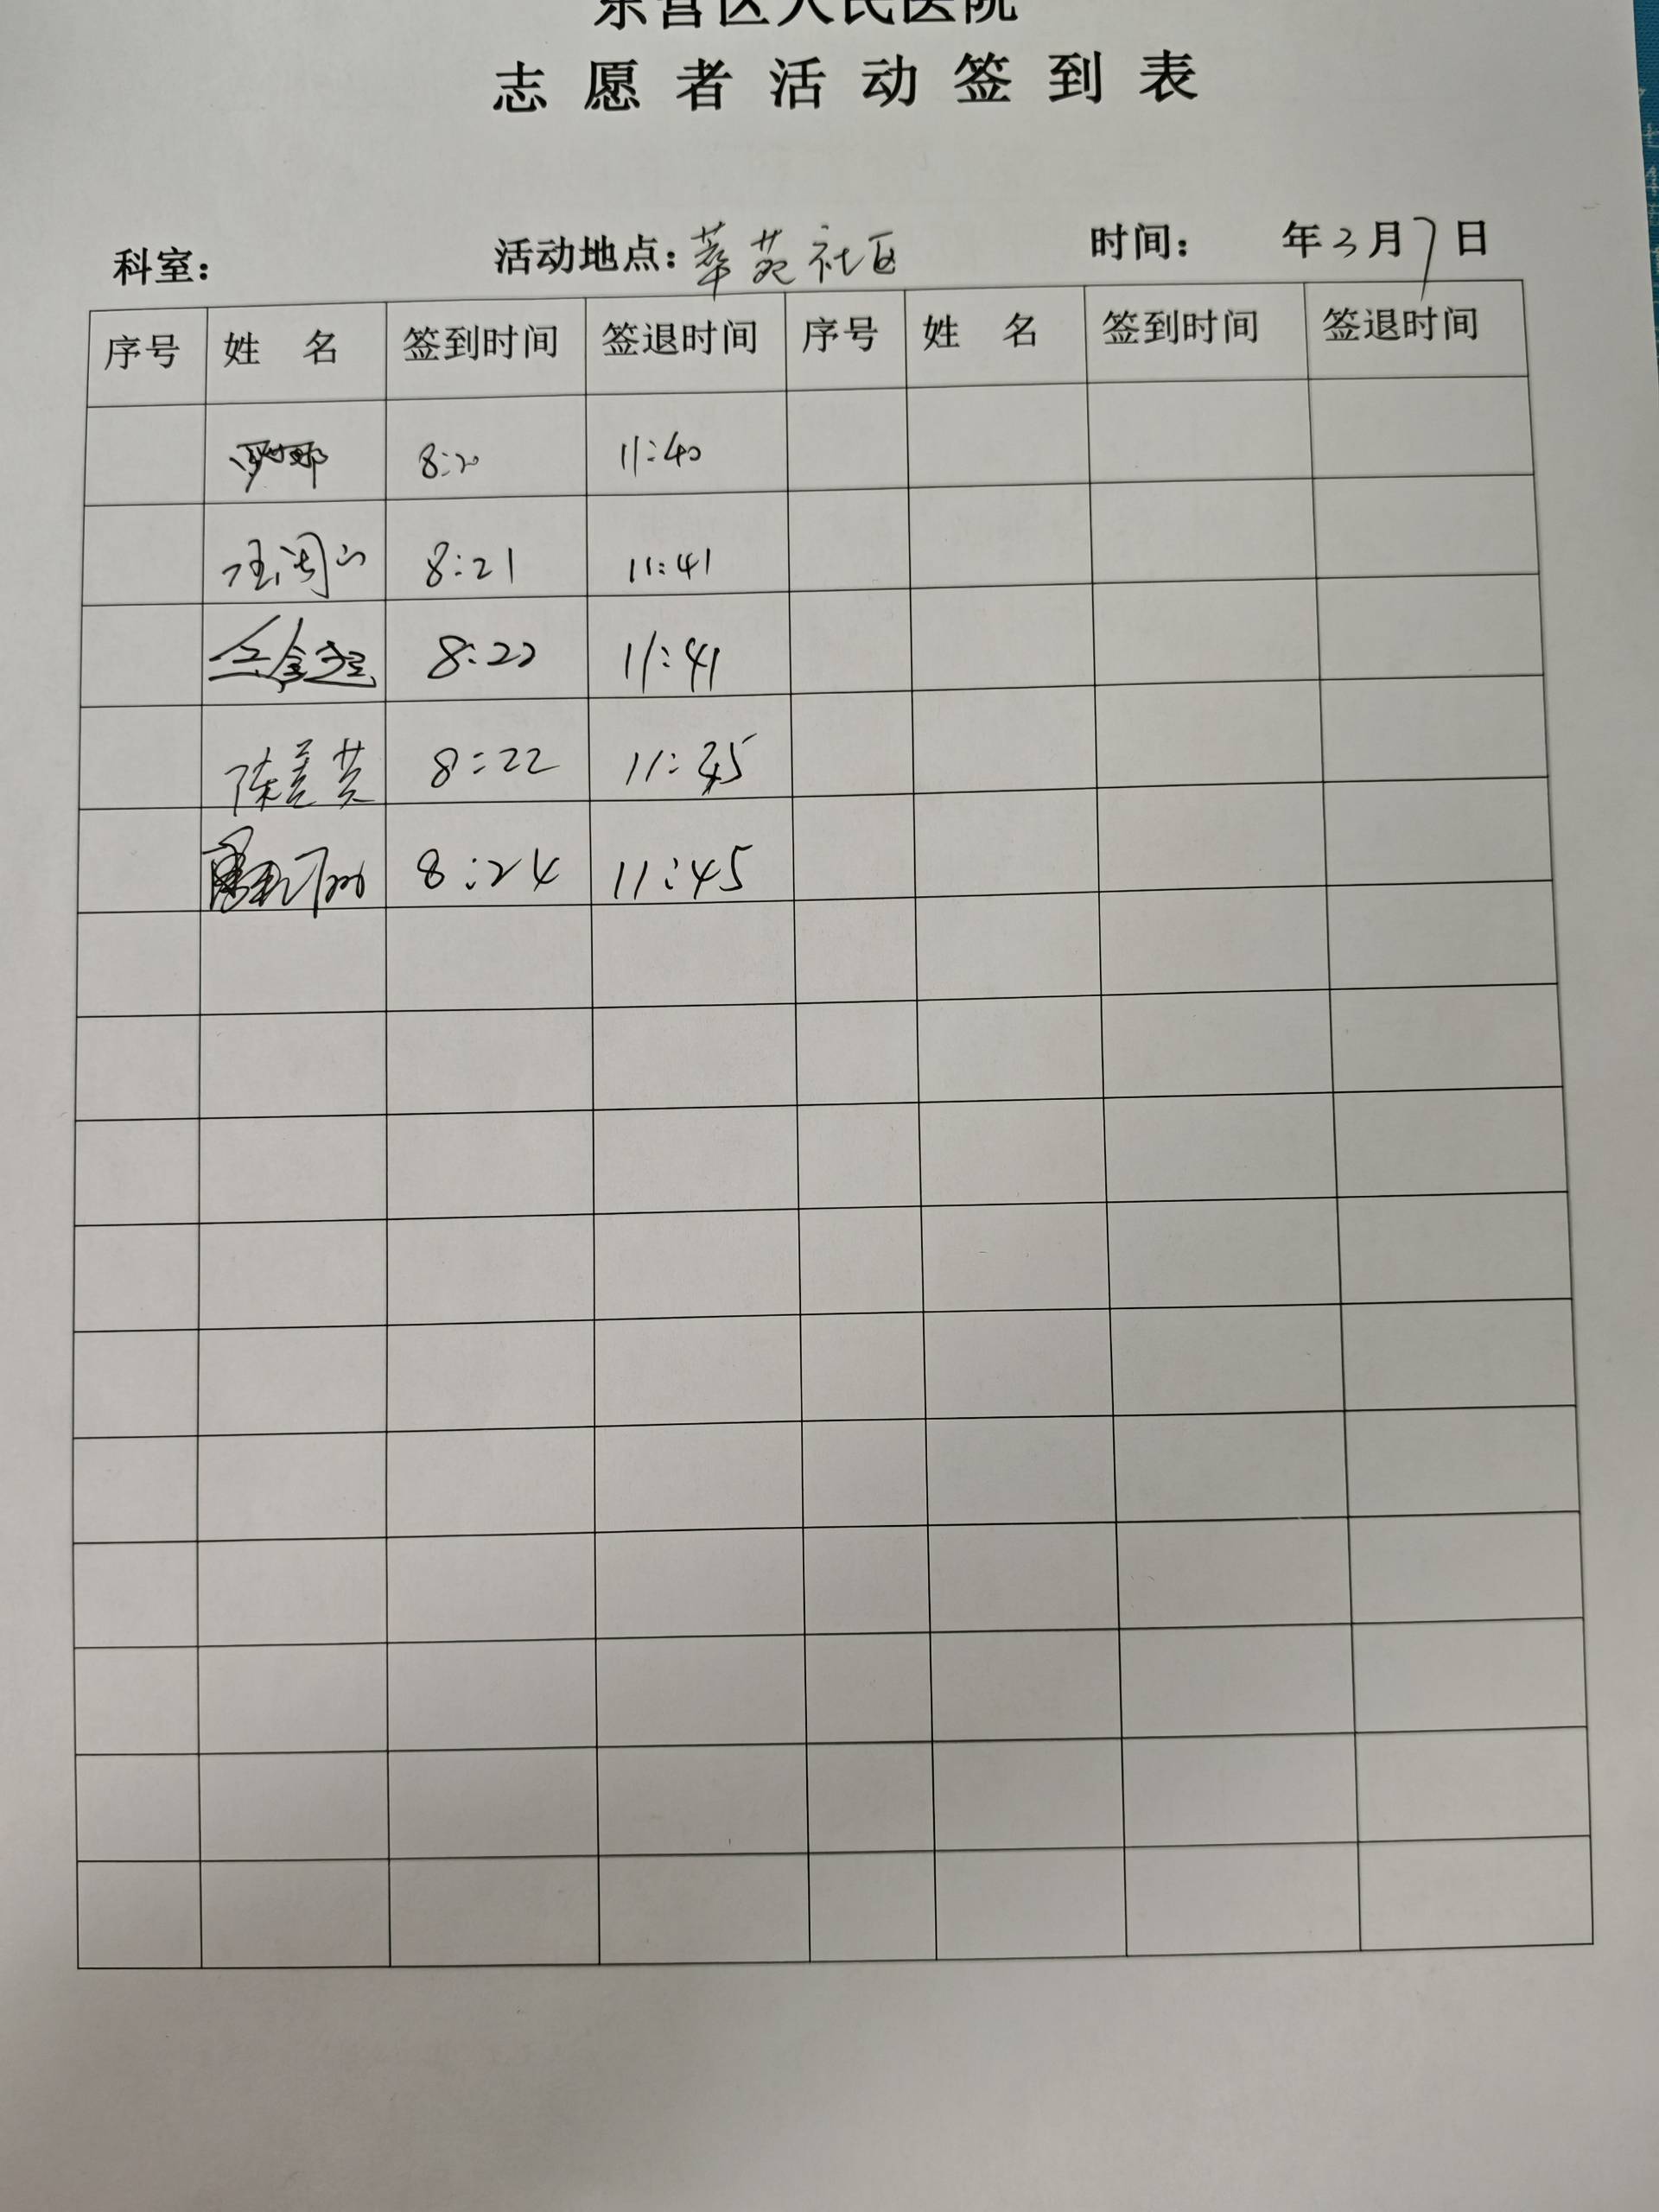 东营区人民医院
志愿者活动签到表
科室： 活动地点：莘苑社区 时间： 年3月7日
序号 姓 名 签到时间 签退时间 序号 姓 名 签到时间 签退时间
8:20 11:40
8:21 11:41
8:22 11:41
陈 8:22 11:45
8:24 11:45